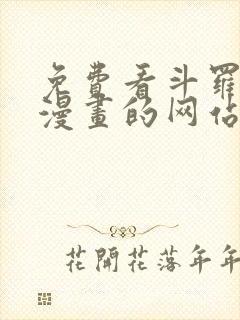 免费看斗羅
漫畫的网佔
花開花落年年